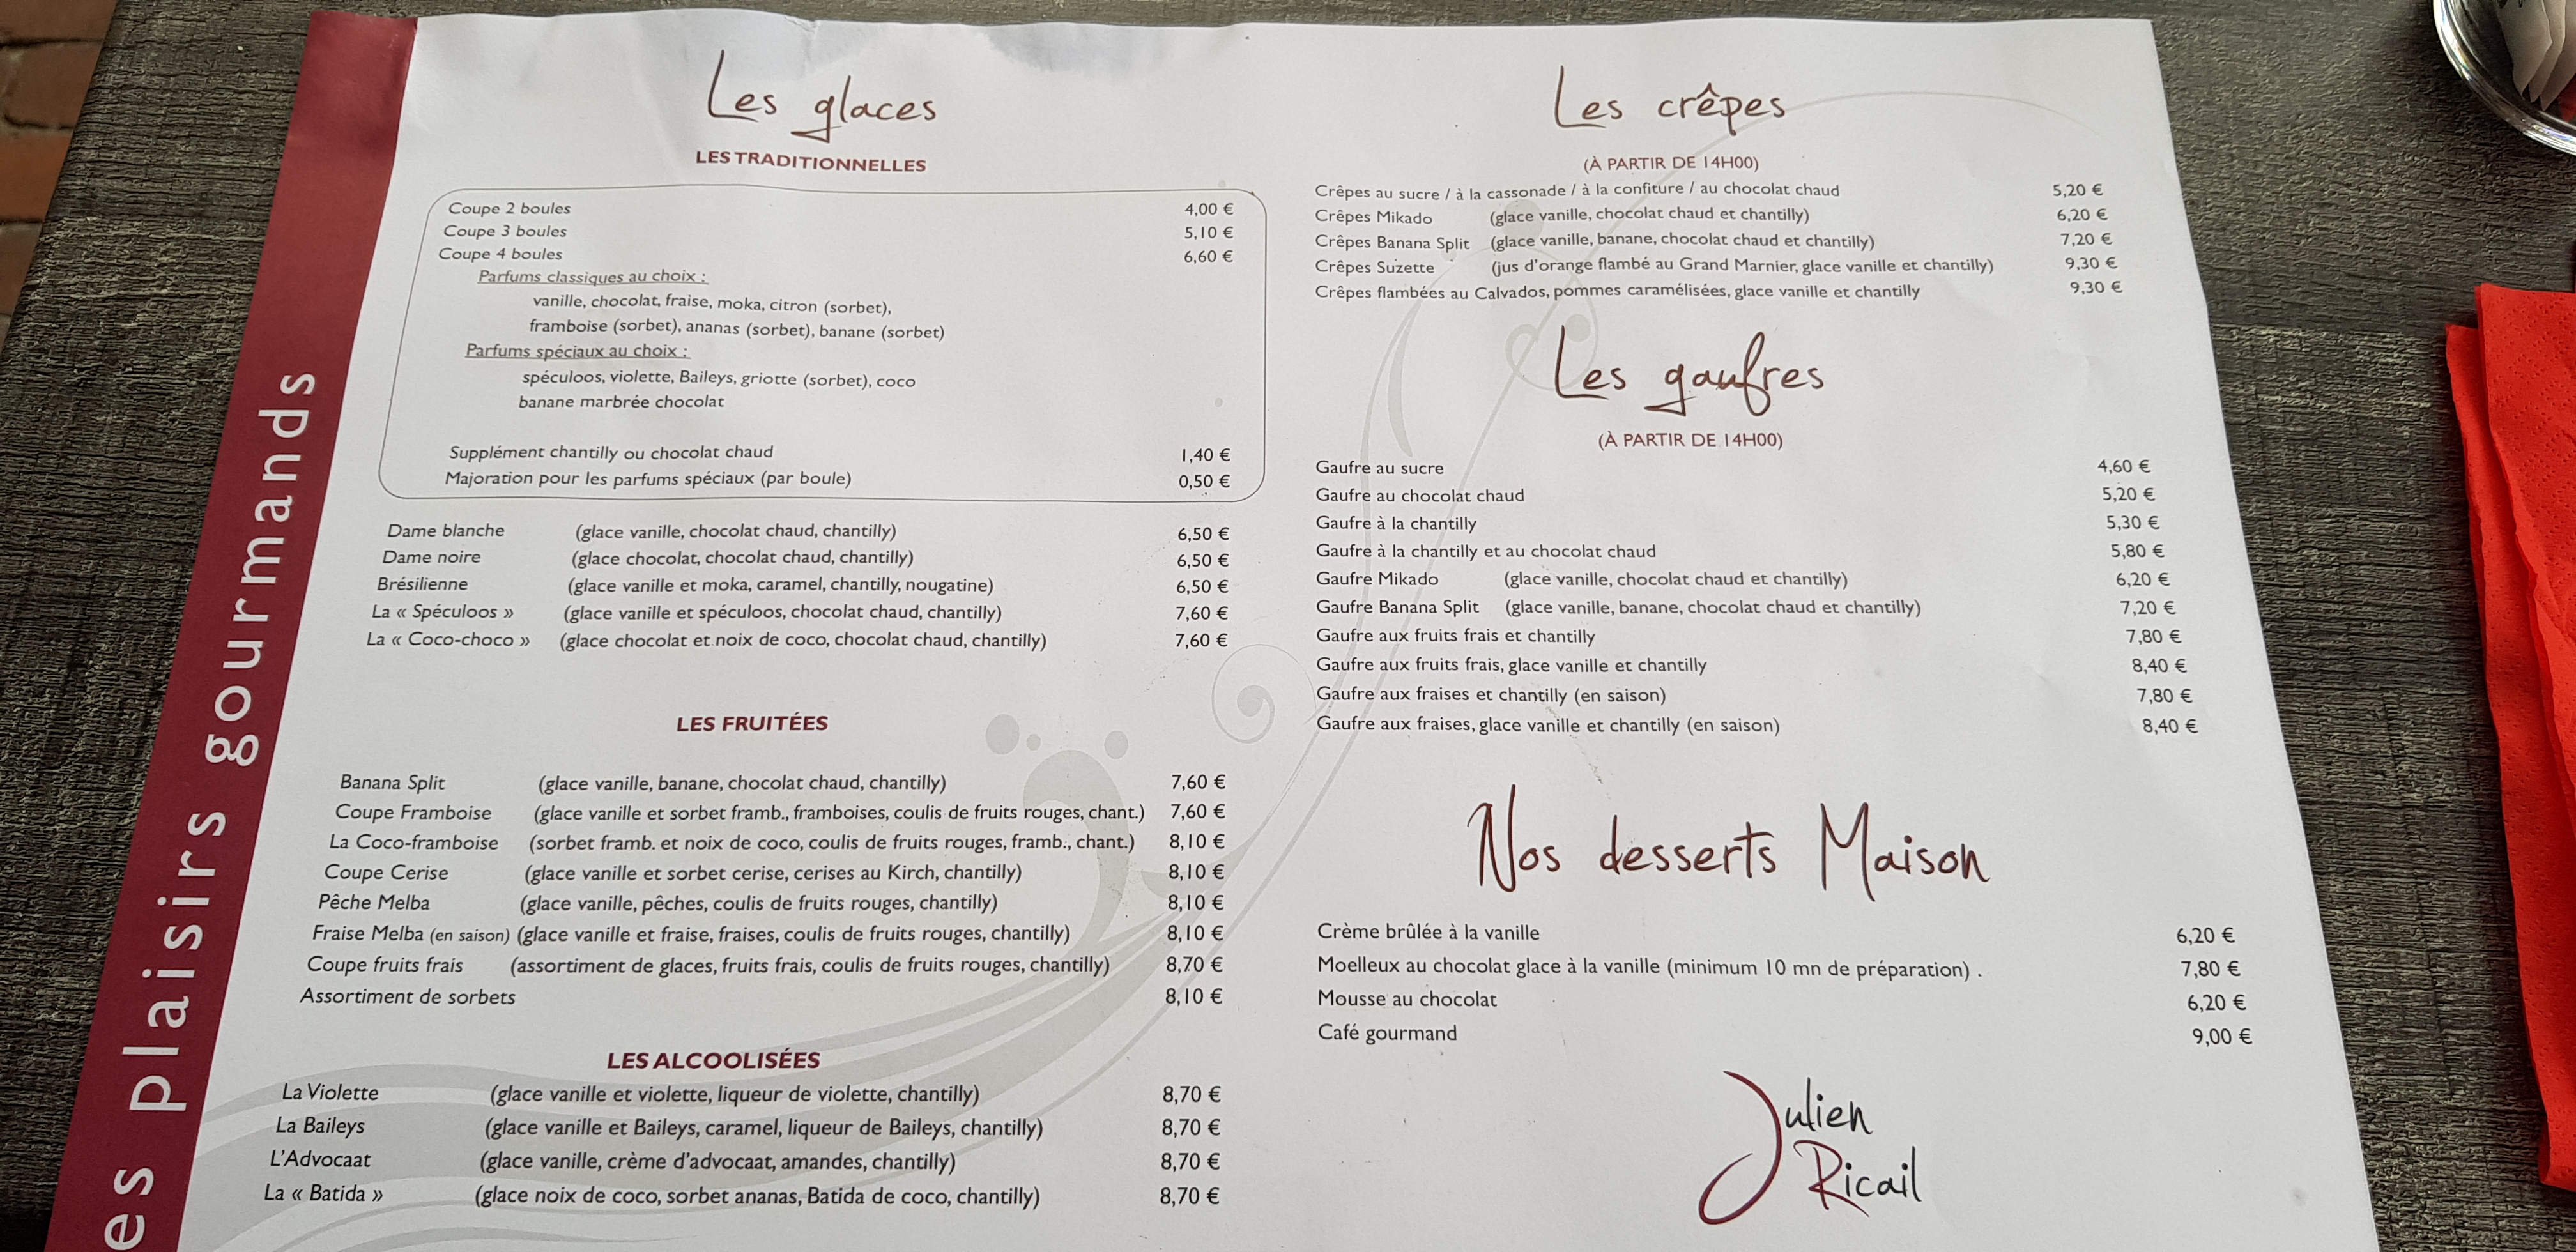 es plaisirs gourmands
Les glaces
LES TRADITIONNELLES
Coupe 2 boules 4,00 €
Coupe 3 boules 5,10 €
Coupe 4 boules 6,60 €
Parfums classiques au choix :
vanille, chocolat, fraise, moka, citron (sorbet),
framboise (sorbet), ananas (sorbet), banane (sorbet)
Parfums spéciaux au choix :
spéculoos, violette, Baileys, griotte (sorbet), coco
banane marbrée chocolat
Supplément chantilly ou chocolat chaud 1,40 €
Majoration pour les parfums spéciaux (par boule) 0,50 €
Dame blanche (glace vanille, chocolat chaud, chantilly) 6,50 €
Dame noire (glace chocolat, chocolat chaud, chantilly) 6,50 €
Brésilienne (glace vanille et moka, caramel, chantilly, nougatine) 6,50 €
La « Spéculoos » (glace vanille et spéculoos, chocolat chaud, chantilly) 7,60 €
La « Coco-choco » (glace chocolat et noix de coco, chocolat chaud, chantilly) 7,60 €
LES FRUITÉES
Banana Split (glace vanille, banane, chocolat chaud, chantilly) 7,60 €
Coupe Framboise (glace vanille et sorbet framb., framboises, coulis de fruits rouges, chant.) 7,60 €
La Coco-framboise (sorbet framb. et noix de coco, coulis de fruits rouges, framb., chant.) 8,10 €
Coupe Cerise (glace vanille et sorbet cerise, cerises au Kirch, chantilly) 8,10 €
Pêche Melba (glace vanille, pêches, coulis de fruits rouges, chantilly) 8,10 €
Fraise Melba (en saison) (glace vanille et fraise, fraises, coulis de fruits rouges, chantilly) 8,10 €
Coupe fruits frais (assortiment de glaces, fruits frais, coulis de fruits rouges, chantilly) 8,70 €
Assortiment de sorbets 8,10 €
LES ALCOOLISÉES
La Violette (glace vanille et violette, liqueur de violette, chantilly) 8,70 €
La Baileys (glace vanille et Baileys, caramel, liqueur de Baileys, chantilly) 8,70 €
L'Advocaat (glace vanille, crème d'advocaat, amandes, chantilly) 8,70 €
La « Batida » (glace noix de coco, sorbet ananas, Batida de coco, chantilly) 8,70 €
Les crêpes
(À PARTIR DE 14H00)
Crêpes au sucre / à la cassonade / à la confiture / au chocolat chaud 5,20 €
Crêpes Mikado (glace vanille, chocolat chaud et chantilly) 6,20 €
Crêpes Banana Split (glace vanille, banane, chocolat chaud et chantilly) 7,20 €
Crêpes Suzette (jus d'orange flambé au Grand Marnier, glace vanille et chantilly) 9,30 €
Crêpes flambées au Calvados, pommes caramélisées, glace vanille et chantilly 9,30 €
Les gaufres
(À PARTIR DE 14H00)
Gaufre au sucre 4,60 €
Gaufre au chocolat chaud 5,20 €
Gaufre à la chantilly 5,30 €
Gaufre à la chantilly et au chocolat chaud 5,80 €
Gaufre Mikado (glace vanille, chocolat chaud et chantilly) 6,20 €
Gaufre Banana Split (glace vanille, banane, chocolat chaud et chantilly) 7,20 €
Gaufre aux fruits frais et chantilly 7,80 €
Gaufre aux fruits frais, glace vanille et chantilly 8,40 €
Gaufre aux fraises et chantilly (en saison) 7,80 €
Gaufre aux fraises, glace vanille et chantilly (en saison) 8,40 €
Nos desserts Maison
Crème brûlée à la vanille 6,20 €
Moelleux au chocolat glace à la vanille (minimum 10 mn de préparation) . 7,80 €
Mousse au chocolat 6,20 €
Café gourmand 9,00 €
Julien
Ricail